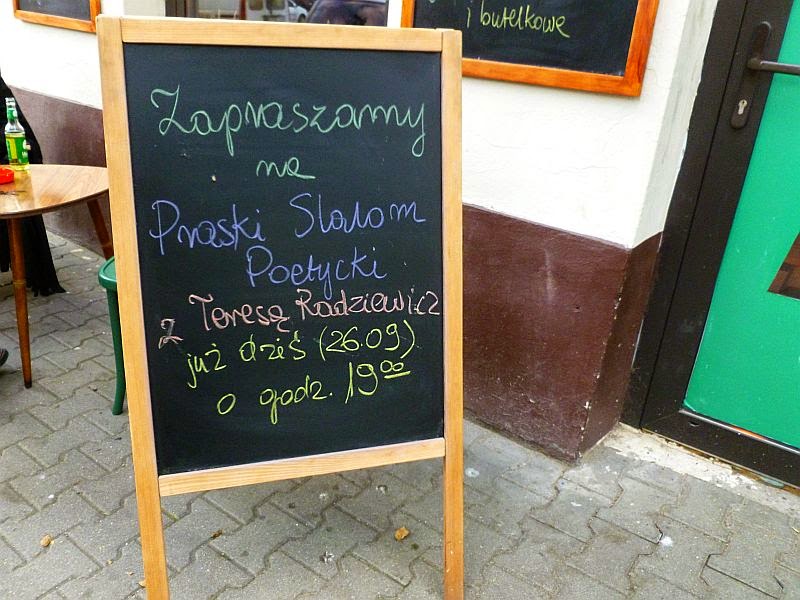 i butelkowe
Zapraszamy
na
Praski Slalom
Poetycki
z Teresą Radziewicz
już dziś (26.09)
o godz. 19⁰⁰